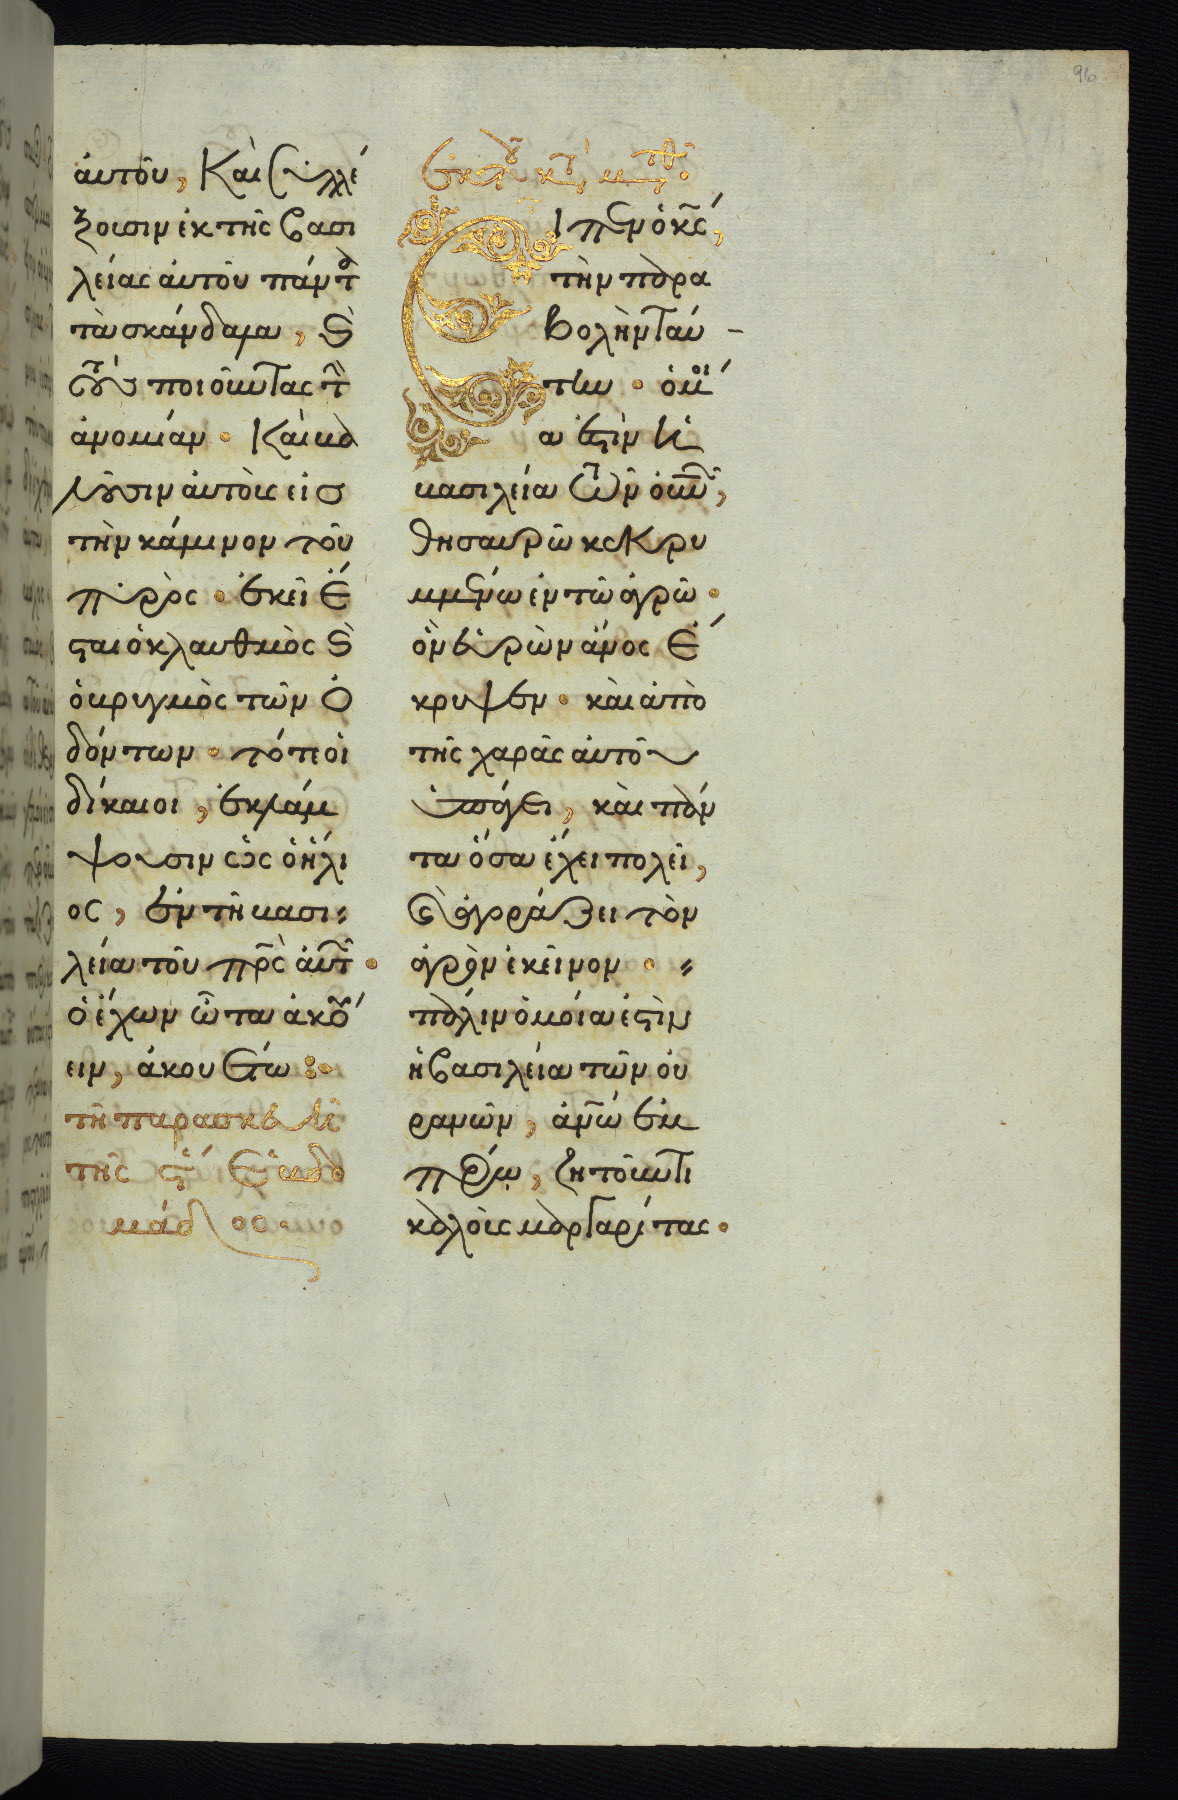 96
αὐτοῦ, Καὶ συλλέ
ξουσιν ἐκ τῆς βασι
λείας αὐτοῦ πάντ
τὰ σκάνδαλα, Ϛ̀
τοὺς ποιοῦντας τ
ἀνομίαν · Καὶ βα
λοῦσιν αὐτοὺς εἰς
τὴν κάμινον τοῦ
πυρὸς · ἐκεῖ ἔ
σται ὁ κλαυθμὸς Ϛ̀
ὁ βρυγμὸς τῶν ὀ
δόντων · τότε οἱ
δίκαιοι, ἐκλάμ
ψουσιν ὡς ὁ ἥλι
ος, ἐν τῆ βασι
λεία τοῦ πρς αὐτ ·
ὁ ἔχων ὦτα ἀκού
ειν, ἀκουέτω :·
τῆ παρασκευῆ
τῆς ϛ ἑβδο
μάδος ·
ἐκ τοῦ κτ μτθ
Εἶπεν ὁ κς,
τὴν παρα
βολὴν ταύ
την · ὁμοί
α ἐστὶν ἡ
βασιλεία τῶν οὐνῶν,
θησαυρῶ κεκρυ
μμένω ἐν τῶ ἀγρῶ ·
ὃν εὑρὼν ἄνος ἔ
κρυψεν · καὶ ἀπὸ
τῆς χαρᾶς αὐτοῦ
ὑπάγει, καὶ πάν
τα ὅσα ἔχει πωλεῖ,
Ϛ̀ ἀγοράζει τὸν
ἀγρὸν ἐκεῖνον ·
πάλιν ὁμοία ἐστὶν
ἡ βασιλεία τῶν οὐ
ρανῶν, ἀνω ἐμ
πόρω, ζητοῦντι
καλοὺς μαργαρίτας ·